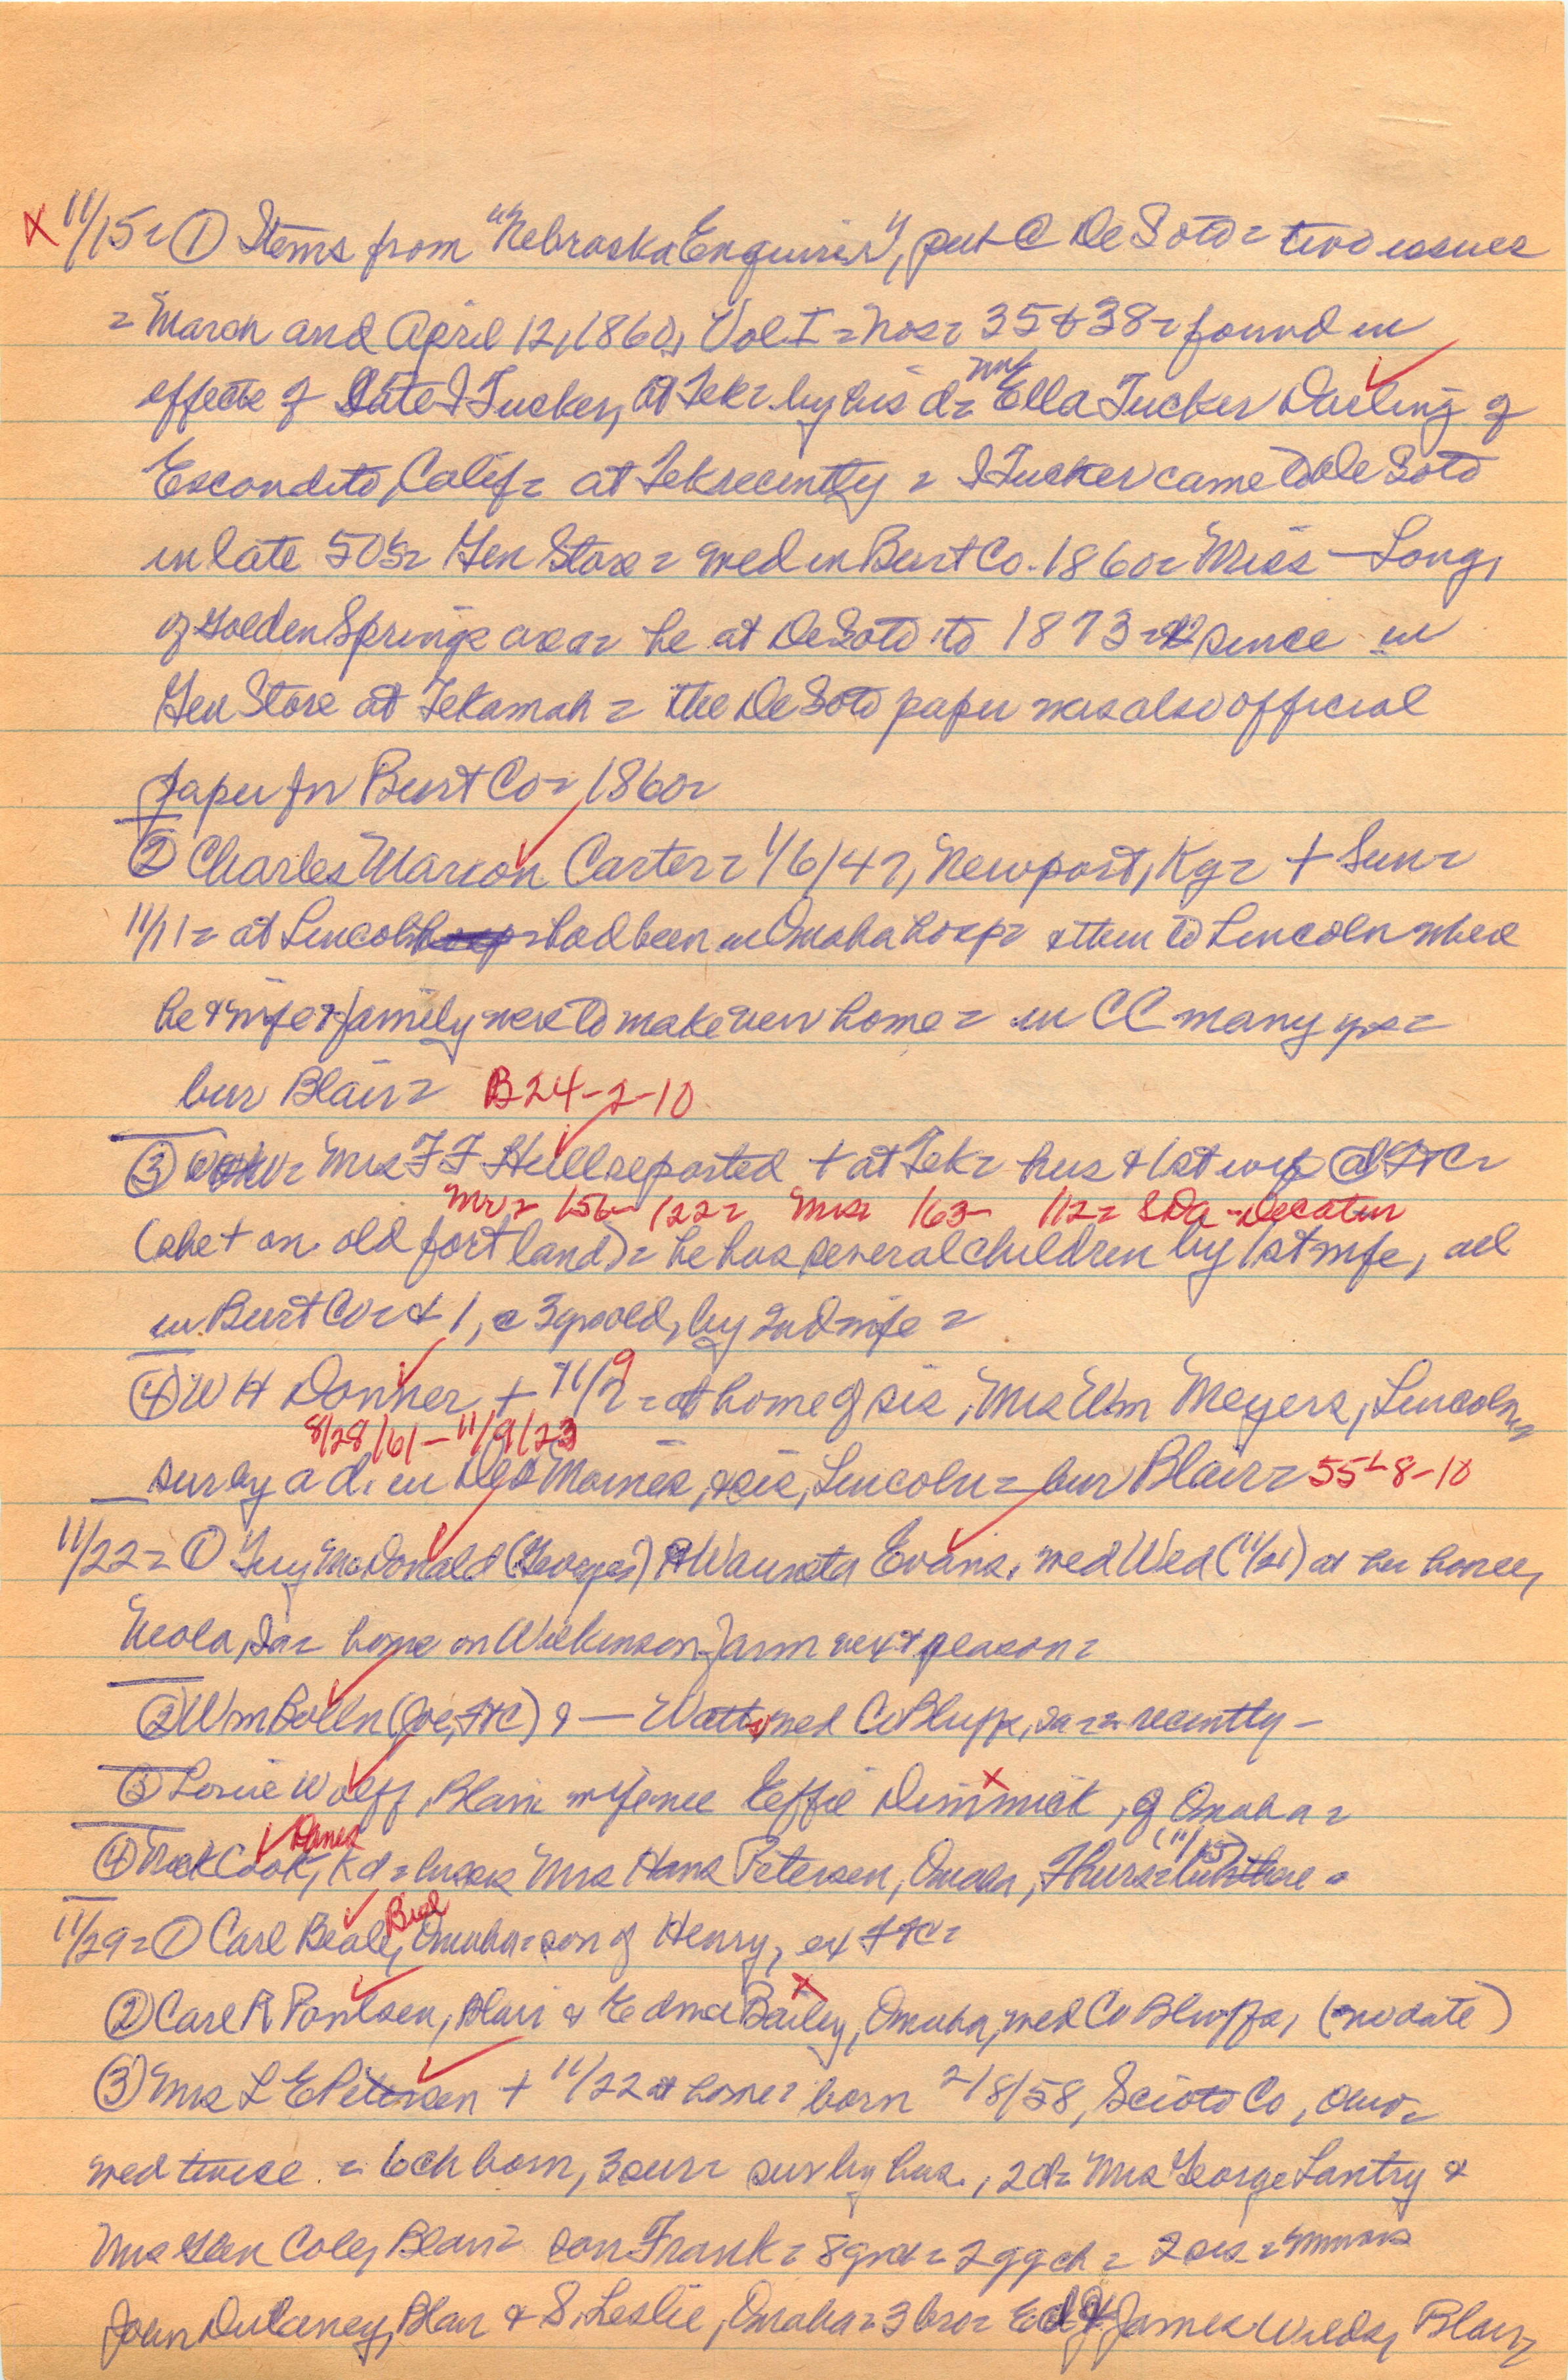 X 11/15 = ① Items from "Nebraska Enquirer", pub @ De Soto = two issues
= March and April 12, 1860, Vol I = Nos = 35 & 38 = found in
effects of Late I Tucker, at Tek = by his d = Mrs Ella Tucker Darling of
Escondito, Calif = at Tek recently = I Tucker came to De Soto
in late 50s = Gen Store = wed in Burt Co. 1860 = Miss — Long,
of Golden Springs area = he at DeSoto to 1873 = & since in
Gen Store at Tekamah = the De Soto paper was also official
paper for Burt Co = 1860 =
② Charles Marion Carter = 1/6/47, Newport, Ky = + Sun =
11/11 = at Lincoln = had been in Omaha hosp = & then to Lincoln where
he & wife & family were to make new home = in CC many yrs =
bur Blair = B24-2-10
③ Mrs F F Hull reported + at Tek = hus & 1st wife @ FtC =
Mr = 156- 122 = Mrs 163- 112 = SDa - Decatur
(she + on old fort land) = he has several children by 1st wife, all
in Burt Co = & 1, c 3 yrs old, by 2nd wife =
④ W H Donner + 11/9 = at home of sis, Mrs Wm Meyers, Lincoln =
8/28/61 - 11/9/23
sur by a d. in Des Moines, & sis, Lincoln = bur Blair = 55L-8-10
11/22 = ① Guy McDonald (George's) & Wauneta Evans, wed Wed (11/21) at her home,
Neola, Ia = home on Wilkinson farm next season =
② Wm Bolln (Joe, FtC) & — Watts, wed Co Bluffs, Ia = recently -
③ Louie Wolff, Blair m license Effie Dimmick, of Omaha =
④ Nick Cook, Danes Kd = husks Mrs Hans Petersen, Omaha, Thurs (11/15) =
11/29 = ① Carl Beale, Biel Omaha = son of Henry, ex FtC =
② Carl R Poulsen, Blair & Edna Bailey, Omaha, wed Co Bluffs, (no date)
③ Mrs L E Petersen + 11/22 at home = born 2/8/58, Scioto Co, Ohio =
wed twice = 6 ch born, 3 sur = sur by hus., 2 d = Mrs George Lantry &
Mrs Glen Coley, Blair = son Frank = 8 grch = 2 ggch = 2 sis = Mmes
John Dulaney, Blair & S. Leslie, Omaha = 3 bro = Ed & James Wilds, Blair,